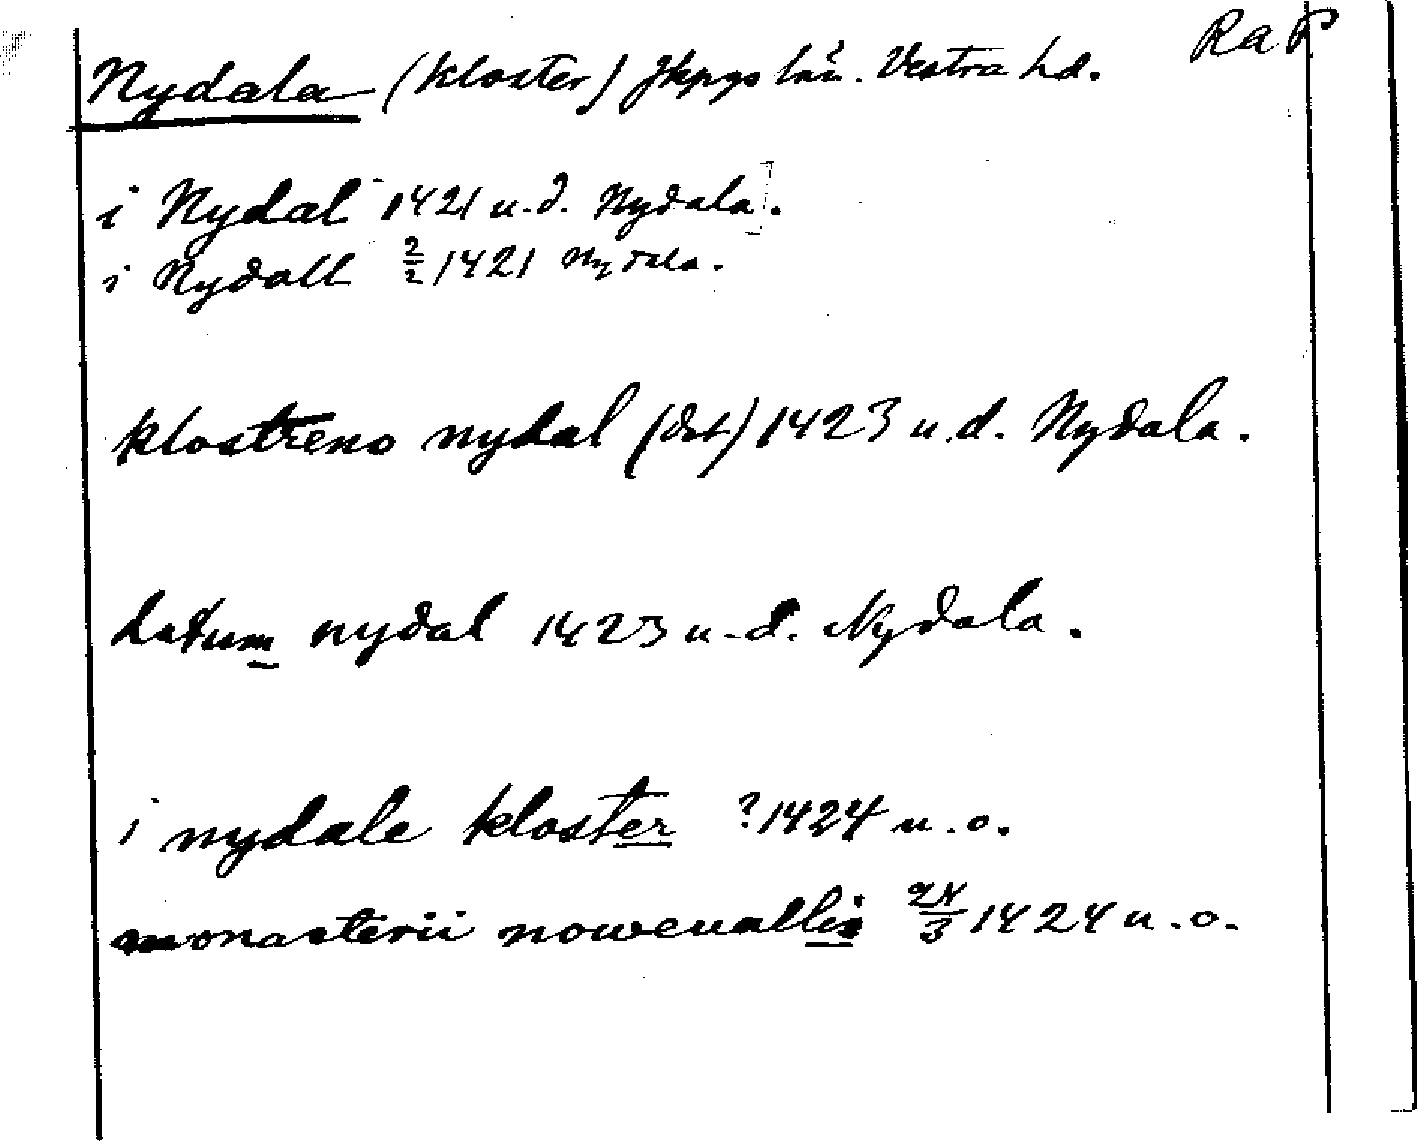 RaP
Nydala (kloster) Jkpgs län. Vestra hd.
i Nydal 1421 u.d. Nydala.
i Nydall 2/2 1421 Nydala.
klostreno nydal (dat) 1423 u.d. Nydala.
datum nydal 1423 u.d. Nydala.
i nydale kloster ? 1424 u.o.
monasterii noweuallis 24/3 1424 u.o.